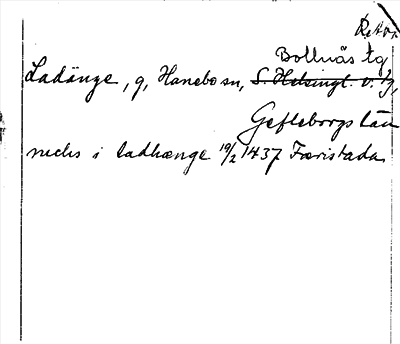 R. Ant.
Bollnäs tg
Ladänge, g, Hanebo sn, S. Helsingl. v. tg,
Gefleborgs län
nechs i ladhænge 19/2 1437 Færistada